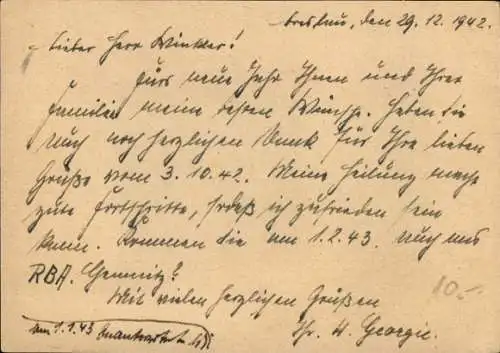 Breslau, den 29.12.1942.
Lieber Herr Winkler!
Fürs neue Jahr Ihnen und Ihrer
Familie meine besten Wünsche. Haben Sie
auch noch herzlichen Dank für Ihre lieben
Grüße vom 3.10.42. Meine Heilung macht
gute Fortschritte, sodaß ich zufrieden sein
kann. Kommen Sie am 1.2.43. nach
RBA. Chemnitz?
Mit vielen herzlichen Grüßen
Ihr H. Georgie.
am 1.1.43 beantwortet
10.-